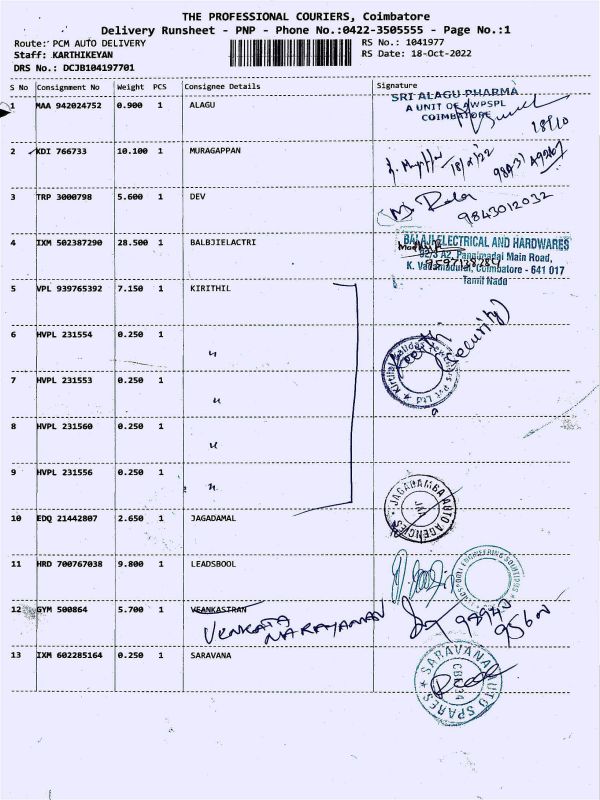 THE PROFESSIONAL COURIERS, Coimbatore
Delivery Runsheet - PNP - Phone No.:0422-3505555 - Page No.:1
Route: PCM AUTO DELIVERY
RS No.: 1041977
Staff: KARTHIKEYAN
RS Date: 18-Oct-2022
DRS No.: DCJB104197701
S No Consignment No Weight PCS Consignee Details Signature
1 MAA 942024752 0.900 1 ALAGU
SRI ALAGU PHARMA
A UNIT OF AWPSPL
COIMBATORE
18/10
2 KDI 766733 10.100 1 MURAGAPPAN
18/10/22
3 TRP 3000798 5.600 1 DEV
9843012032
4 IXM 502387290 28.500 1 BALBJIELACTRI
BALAJI ELECTRICAL AND HARDWARES
92/3 A2, Pannimadai Main Road,
K. Vadamadurai, Coimbatore - 641 017
Tamil Nadu
5 VPL 939765392 7.150 1 KIRITHIL
6 HVPL 231554 0.250 1 "
(Security)
7 HVPL 231553 0.250 1 "
8 HVPL 231560 0.250 1 "
9 HVPL 231556 0.250 1 "
10 EDQ 21442807 2.650 1 JAGADAMAL
JAGADAMBA AUTO AGENCIES
11 HRD 700767038 9.800 1 LEADSBOOL
12 GYM 500864 5.700 1 VEANKASTRAN
VENKATA NARAYANAN
13 IXM 602285164 0.250 1 SARAVANA
SARAVANA AUTO SPARES